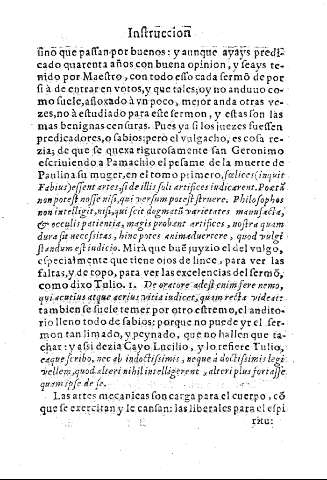 Instruccion
sino que passan por buenos: y aunque ayays predi-
cado quarenta años con buena opinion, y seays te-
nido por Maestro, con todo esso cada sermō de por
si à de entrar en votos, y que tales; oy no anduuo co-
mo suele, afloxado à vn poco, mejor anda otras ve-
zes, no à estudiado para este sermon, y estas son las
mas benignas censuras. Pues ya si los juezes fuessen
predicadores, o sabios: pero el vulgacho, es cosa re-
zia; de que se quexa rigurosamente san Geronimo
escriuiendo a Pamachio el pesame de la muerte de
Paulina su muger, en el tomo primero, fœlices (inquit
Fabius) essent artes, si de illis soli artifices indicarent. Poetā
non potest nosse nisi, qui versum potest struere. Philosophos
non intelligit, nisi, qui scit dogmatū varietates manufacta,
& occulis patientia, magis probant artifices, nostra quam
dura sit necessitas, hinc potes animaduertere, quod vulgi
standum est iudicio. Mirà que buē juyzio el del vulgo,
especialmente que tiene ojos de lince, para ver las
faltas, y de topo, para ver las excelencias del sermō,
como dixo Tulio. 1. De oratore adest enim fere nemo,
qui acutius atque acrius vitia iudicet, quam recta videat:
tambien se suele temer por otro estremo, el audito-
rio lleno todo de sabios; porque no puede yr el ser-
mon tan limado, y peynado, que no hallen que ta-
char: y assi dezia Cayo Lucilio, y lo refiere Tulio,
eaque scribo, nec ab indoctissimis, neque à doctissimis legi
vellem, quod alteri nihil intelligerent, alteri plus fortasse
quam ipse de se.
Las artes mecanicas son carga para el cuerpo, cō
que se exercitan y le cansan: las liberales para el espi
ritu: